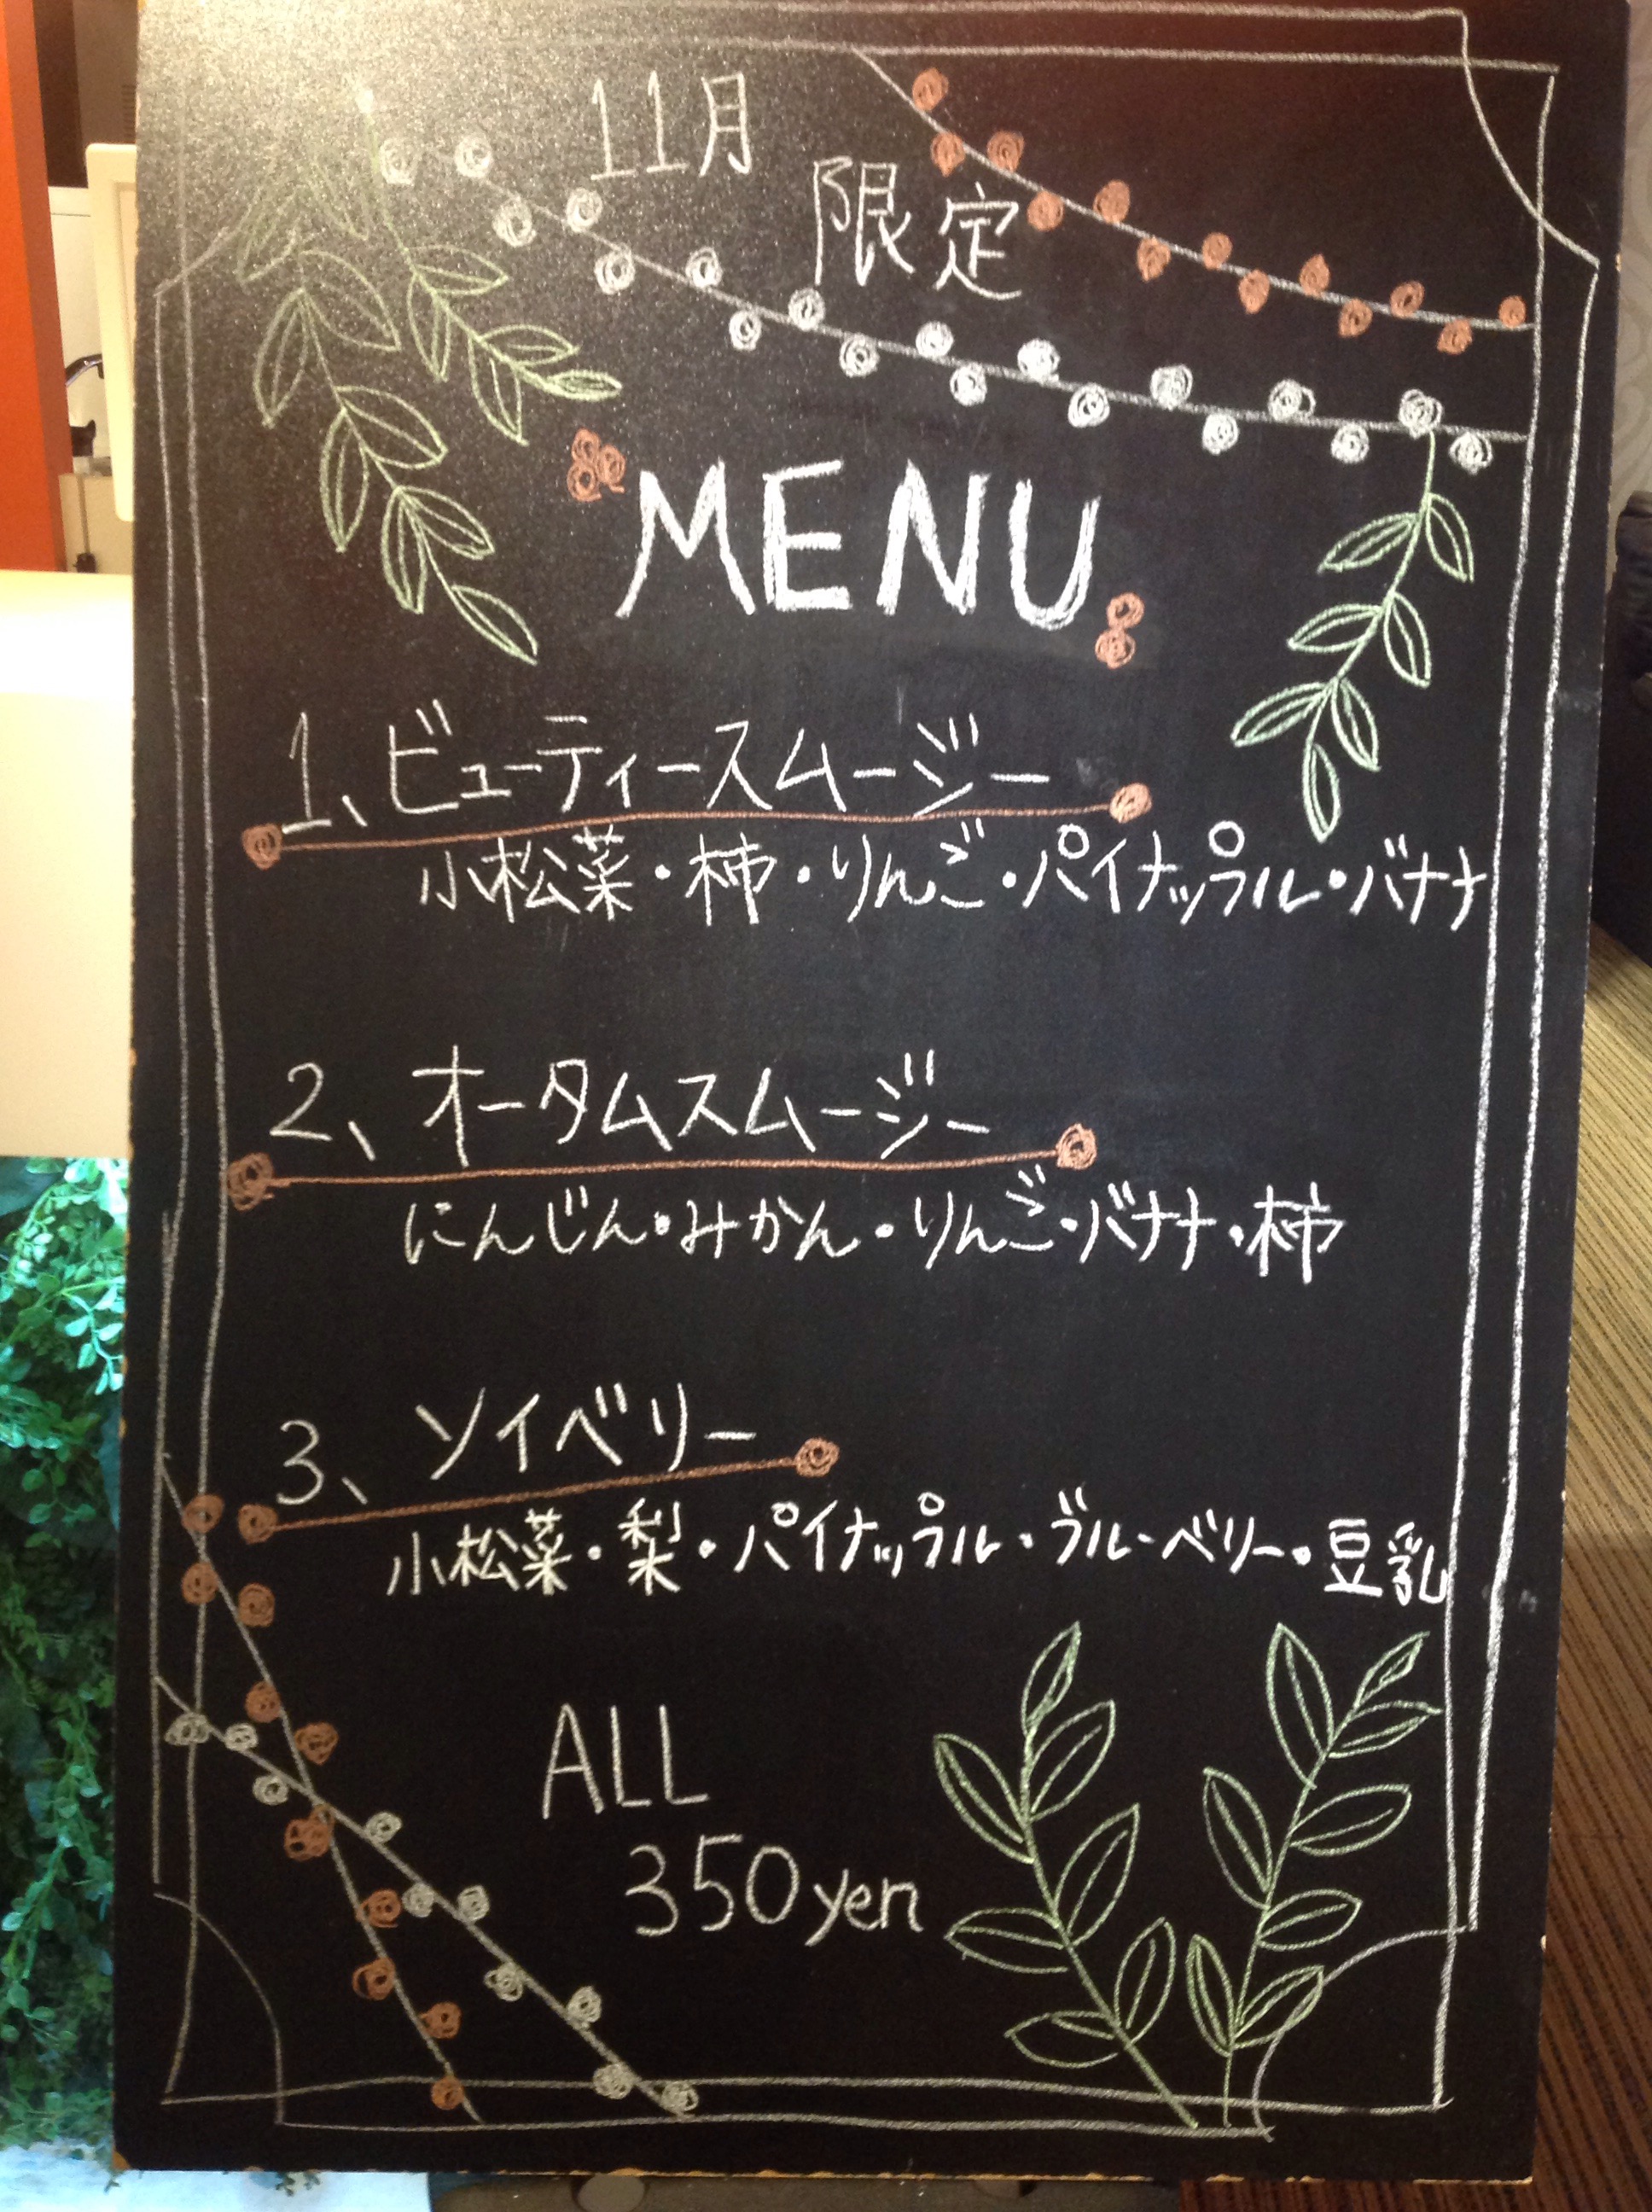 11月
限定
MENU
1、ビューティースムージー
小松菜・柿・りんご・パイナップル・バナナ
2、オータムスムージー
にんじん・みかん・りんご・バナナ・柿
3、ソイベリー
小松菜・梨・パイナップル・ブルーベリー・豆乳
ALL
350yen